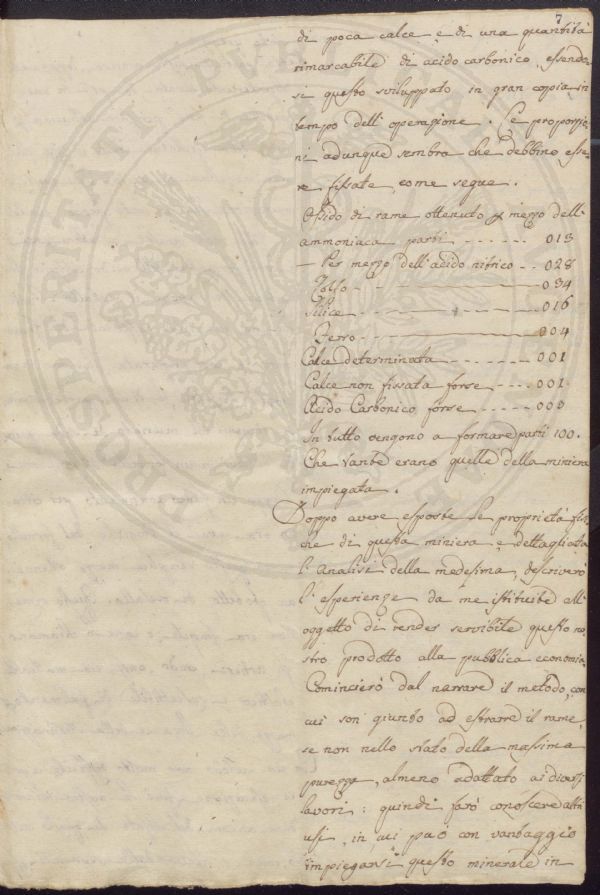 7
di poca calce e di una quantità
rimarcabile di acido carbonico, essendo-
si questo sviluppato in gran copia in
tempo dell'operazione. Le proporzio-
ni adunque sembra che debbino esse-
re fissate come segue.
Ossido di rame ottenuto p mezzo dell'
ammoniaca parti - - - - - - 013
— Per mezzo dell'acido nitrico - - 028
Solfo - - 034
Silice - 016
Ferro - - 004
Calce determinata - - - - - - 001
Calce non fissata forse - - - - 001
Acido Carbonico forse - - - - 003
In tutto vengono a formare parti 100.
Che tante erano quelle della miniera
impiegata.
Doppo avere esposte le proprietà fisi-
che di questa miniera e dettagliata
l'analisi della medesima, descriverò
l'esperienze da me istituite all'
oggetto di render servibile questo no-
stro prodotto alla pubblica economia.
Comincierò dal narrare il metodo, con
cui son giunto ad estrarre il rame,
se non nello stato della massima
purezza, almeno adattato ai diversi
lavori: quindi farò conoscere altri
usi, in cui può con vantaggio
impiegarsi questo minerale in
PROSPERITATI PVBLICAE